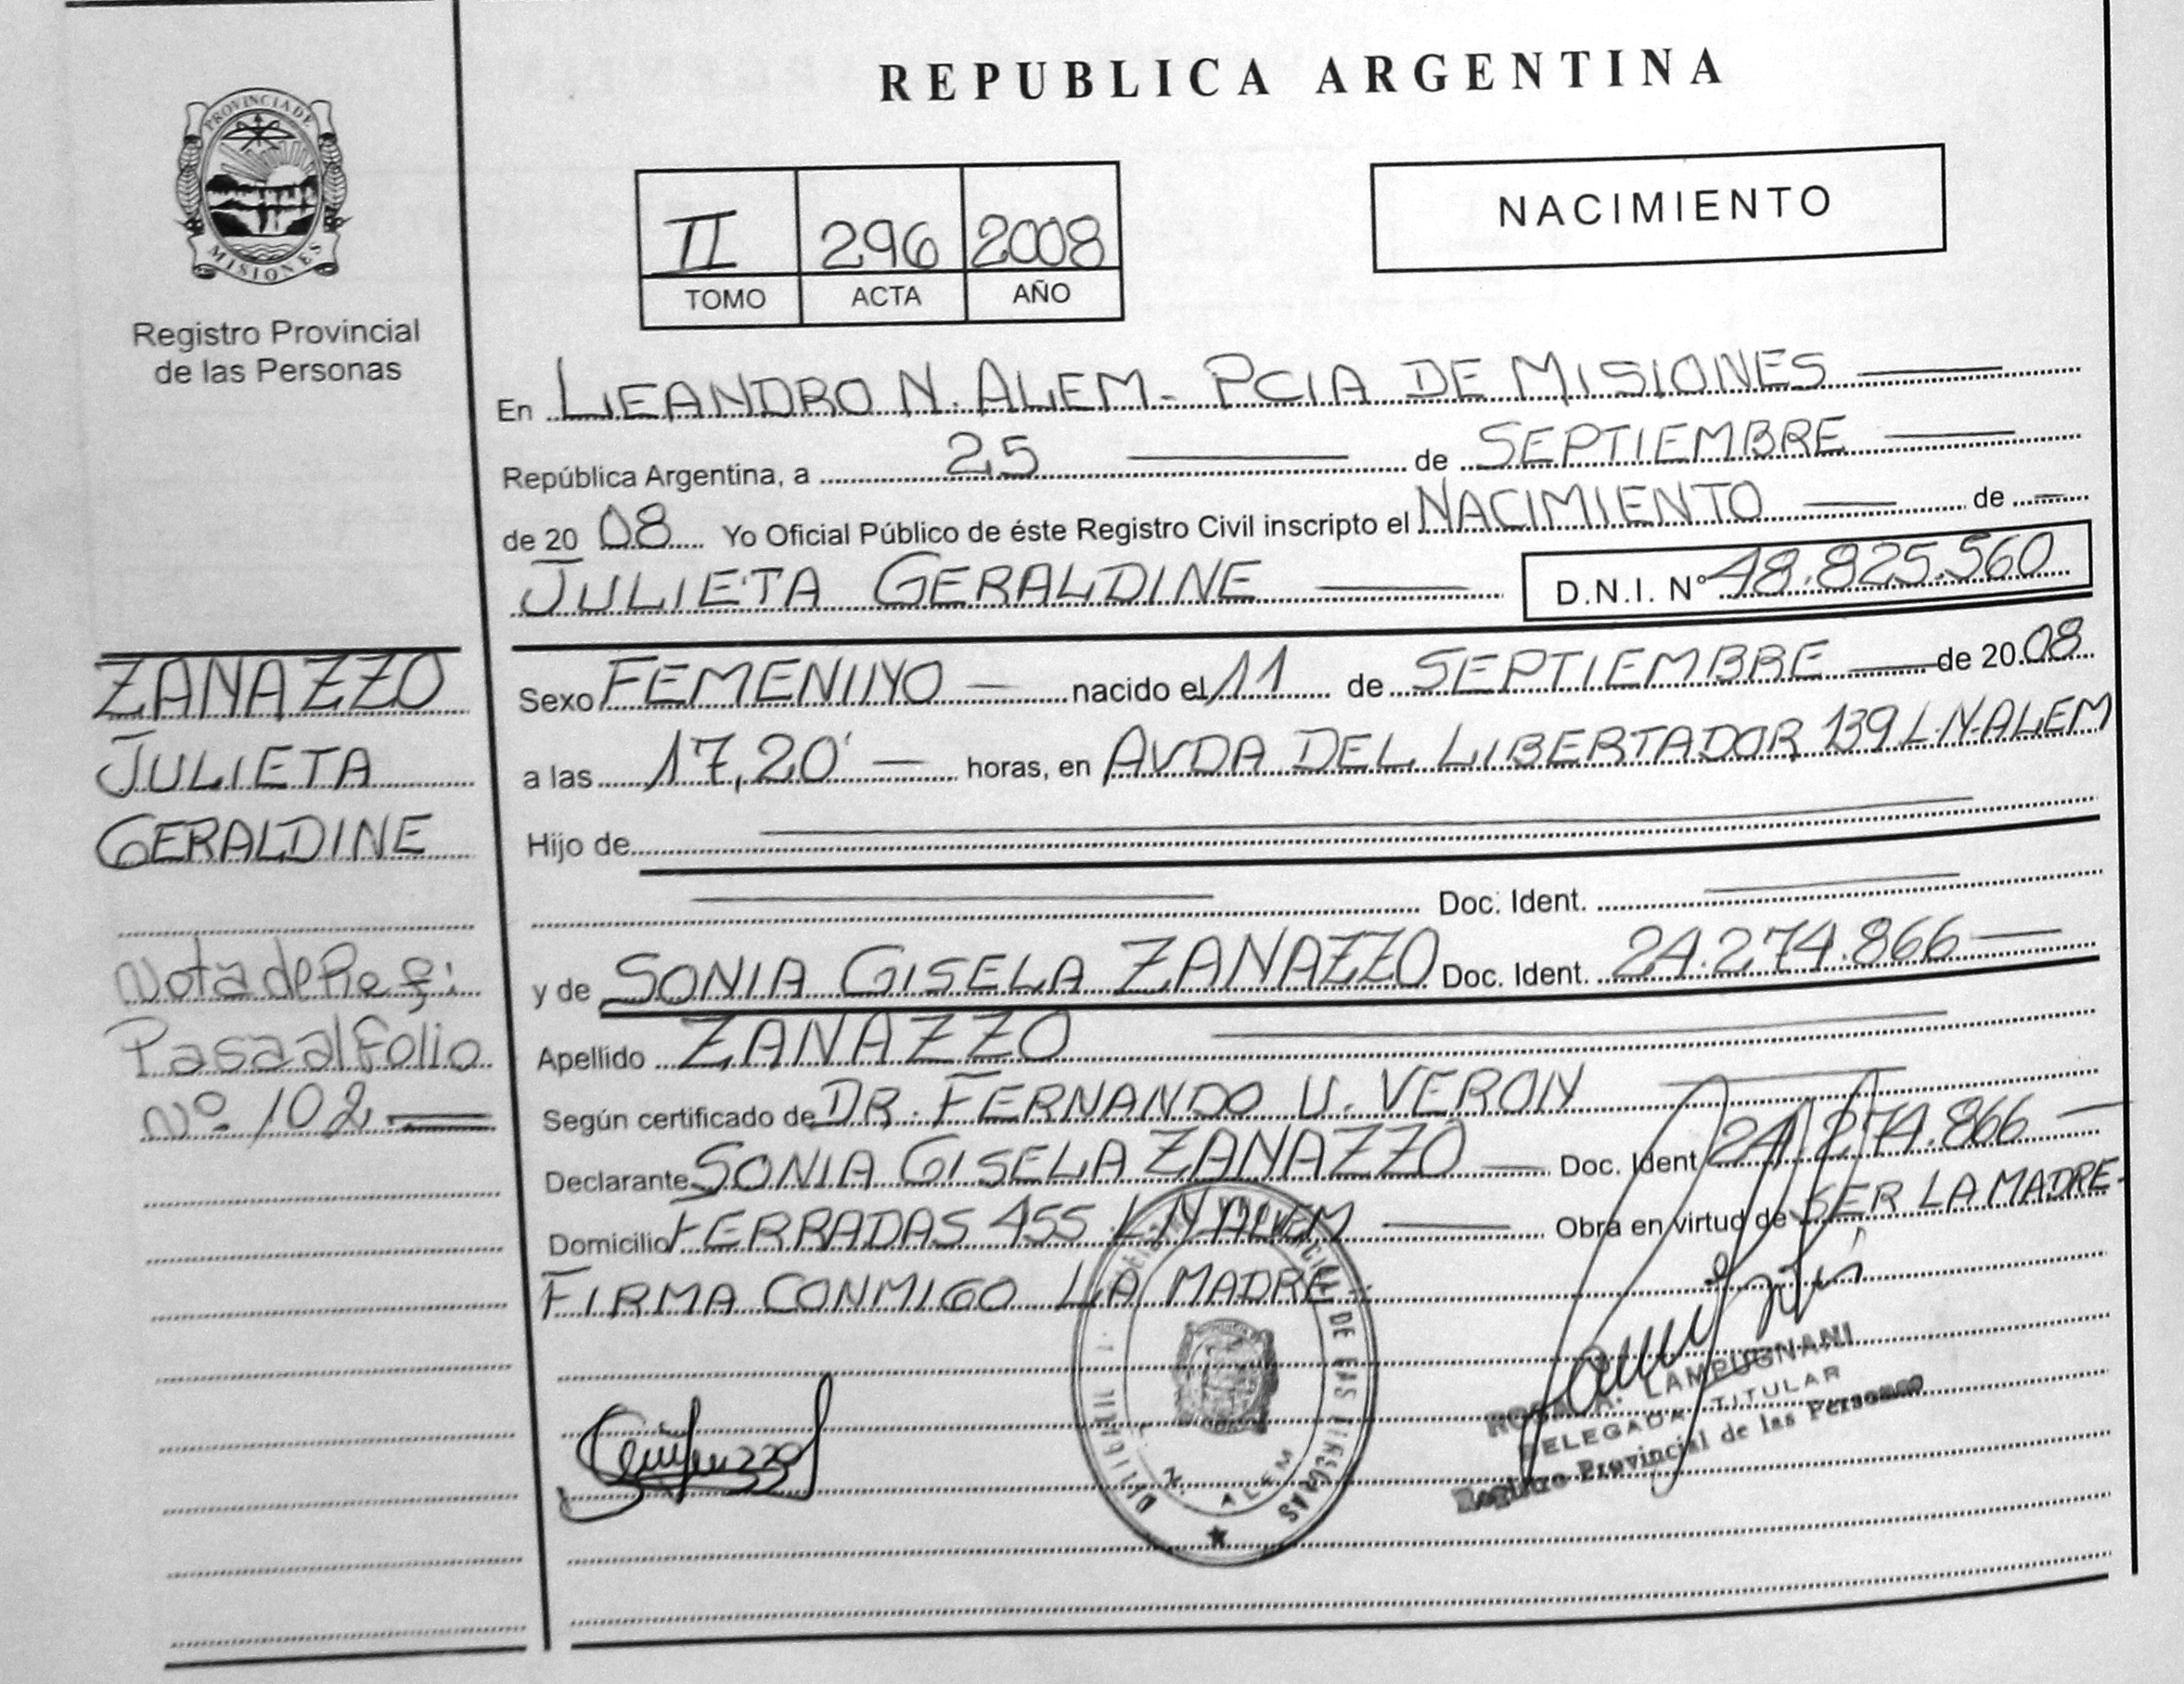 REPUBLICA ARGENTINA
PROVINCIA DE
MISIONES
Registro Provincial
de las Personas
II 296 2008
TOMO ACTA AÑO
NACIMIENTO
En LEANDRO N. ALEM - PCIA DE MISIONES
República Argentina, a 25 de SEPTIEMBRE
de 2008 Yo Oficial Público de éste Registro Civil inscripto el NACIMIENTO de
JULIETA GERALDINE D.N.I. Nº 48.825.560
Sexo FEMENINO nacido el 11 de SEPTIEMBRE de 2008
a las 17,20' horas, en AVDA DEL LIBERTADOR 139 L.N.ALEM
Hijo de
Doc. Ident.
y de SONIA GISELA ZANAZZO Doc. Ident. 24.274.866
Apellido ZANAZZO
Según certificado de DR. FERNANDO U. VERON
Declarante SONIA GISELA ZANAZZO Doc. Ident 24.274.866
Domicilio TERRADAS 455 L.N.ALEM Obra en virtud de SER LA MADRE.
FIRMA CONMIGO LA MADRE.
ZANAZZO
JULIETA
GERALDINE
Nota de Ref:
Pasa al folio
Nº 102
DE LAS
N. ALEM
A. LAMPUGNANI
DELEGADA TITULAR
Registro Provincial de las Personas